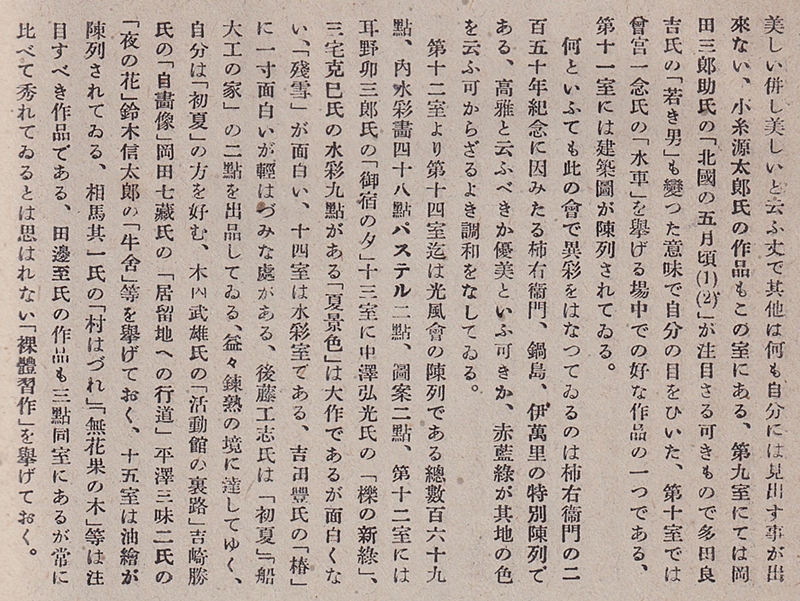 美しい併し美しいと云ふ丈で其他は何も自分には見出す事が出
來ない、小糸源太郎氏の作品もこの室にある、第九室にては岡
田三郎助氏の「北國の五月頃(1)(2)」が注目さる可きもので多田良
吉氏の「若き男」も變つた意味で自分の目をひいた、第十室では
曾宮一念氏の「水車」を擧げる場中での好な作品の一つである、
第十一室には建築圖が陳列されてゐる。
何といふても此の會で異彩をはなつてゐるのは柿右衞門の二
百五十年紀念に因みたる柿右衞門、鍋島、伊萬里の特別陳列で
ある、高雅と云ふべきか優美といふ可きか、赤藍綠が其地の色
を云ふ可からざるよき調和をなしてゐる。
第十二室より第十四室迄は光風會の陳列である總數百六十九
點、內水彩畫四十八點パステル二點、圖案二點、第十二室には
耳野卯三郎氏の「御宿の夕」十三室に中澤弘光氏の「櫟の新綠」、
三宅克巳氏の水彩九點がある「夏景色」は大作であるが面白くな
い、「殘雪」が面白い、十四室は水彩室である、吉田豐氏の「椿」
に一寸面白いが輕はづみな處がある、後藤工志氏は「初夏」「船
大工の家」の二點を出品してゐる、益々鍊熟の境に達してゆく、
自分は「初夏」の方を好む、木四武雄氏の「活動館の裏路」吉崎勝
氏の「自畫像」岡田七藏氏の「居留地への行道」平澤三味二氏の
「夜の花」鈴木信太郎の「牛舍」等を擧げておく、十五室は油繪が
陳列されてゐる、相馬其一氏の「村はづれ」「無花果の木」等は注
目すべき作品である、田邊至氏の作品も三點同室にあるが常に
比べて秀れてゐるとは思はれない「裸體習作」を擧げておく。